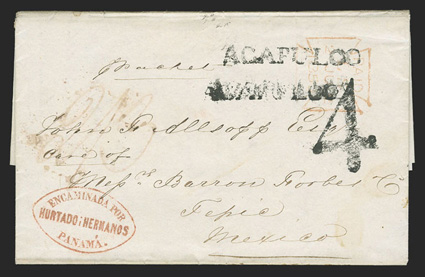 ACAPULCO
ACAPULCO
4
John
Esq
Care of
Messrs Barron Forbes & Co
Tepic
Mexico
ENCAMINADA POR
HURTADO Y HERMANOS
PANAMÁ.